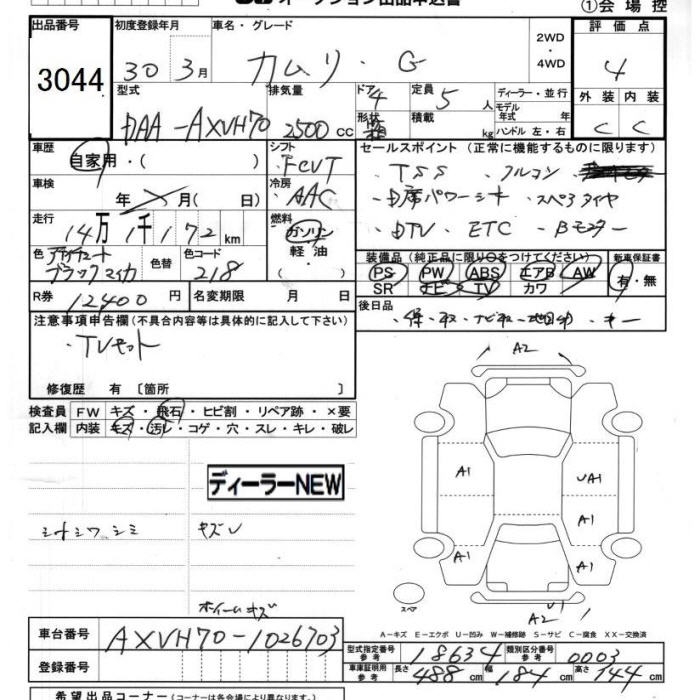 オークション出品申込書
①会場控
出品番号
3044
初度登録年月
30年3月
車名・グレード
カムリ・G
2WD
・
4WD
評価点
4
外装 内装
C C
型式
DAA-AXVH70
排気量
2500cc
ドア
4
形状
箱
定員
5人
積載
kg
ディーラー・並行
モデル
年式 年
ハンドル 左・右
車歴
自家用・( )
シフト
FCVT
車検
年 月(日)
冷房
AAC
走行
14万1千172km
燃料
ガソリン
軽油
・
色
アティチュード
ブラックマイカ
色替
色コード
218
R券
12400円
名変期限 月 日
セールスポイント(正常に機能するものに限ります)
・TSS ・フルコン
・D席パワーシート ・スペアタイヤ
・DTV ・ETC ・Bモニター
装備品(純正品に限り○をつけてください)
PS PW ABS エアB AW
SR ナビ TV カワ
新車保証書
有・無
後日品
・保・取・ナビ取・地図・キー
注意事項申告欄(不具合内容等は具体的に記入して下さい)
・TVキット
修復歴 有〔箇所 〕
検査員 FW キズ・飛石・ヒビ割・リペア跡・×要
記入欄 内装 キズ・汚レ・コゲ・穴・スレ・キレ・破レ
ディーラーNEW
シートシワ シミ キズU
ホイールキズ
A2
A1
UA1
A1
A1
A1
U1
A2
スペア
A-キズ E-エクボ U-凹み W-補修跡 S-サビ C-腐食 XX-交換済
車台番号
AXVH70-1026703
登録番号
型式指定番号
参考
18634
類別区分番号
参考
0003
車庫証明用
参考
長さ
488cm
幅
184cm
高さ
144cm
希望出品コーナー(コーナーは各会場により異なります)